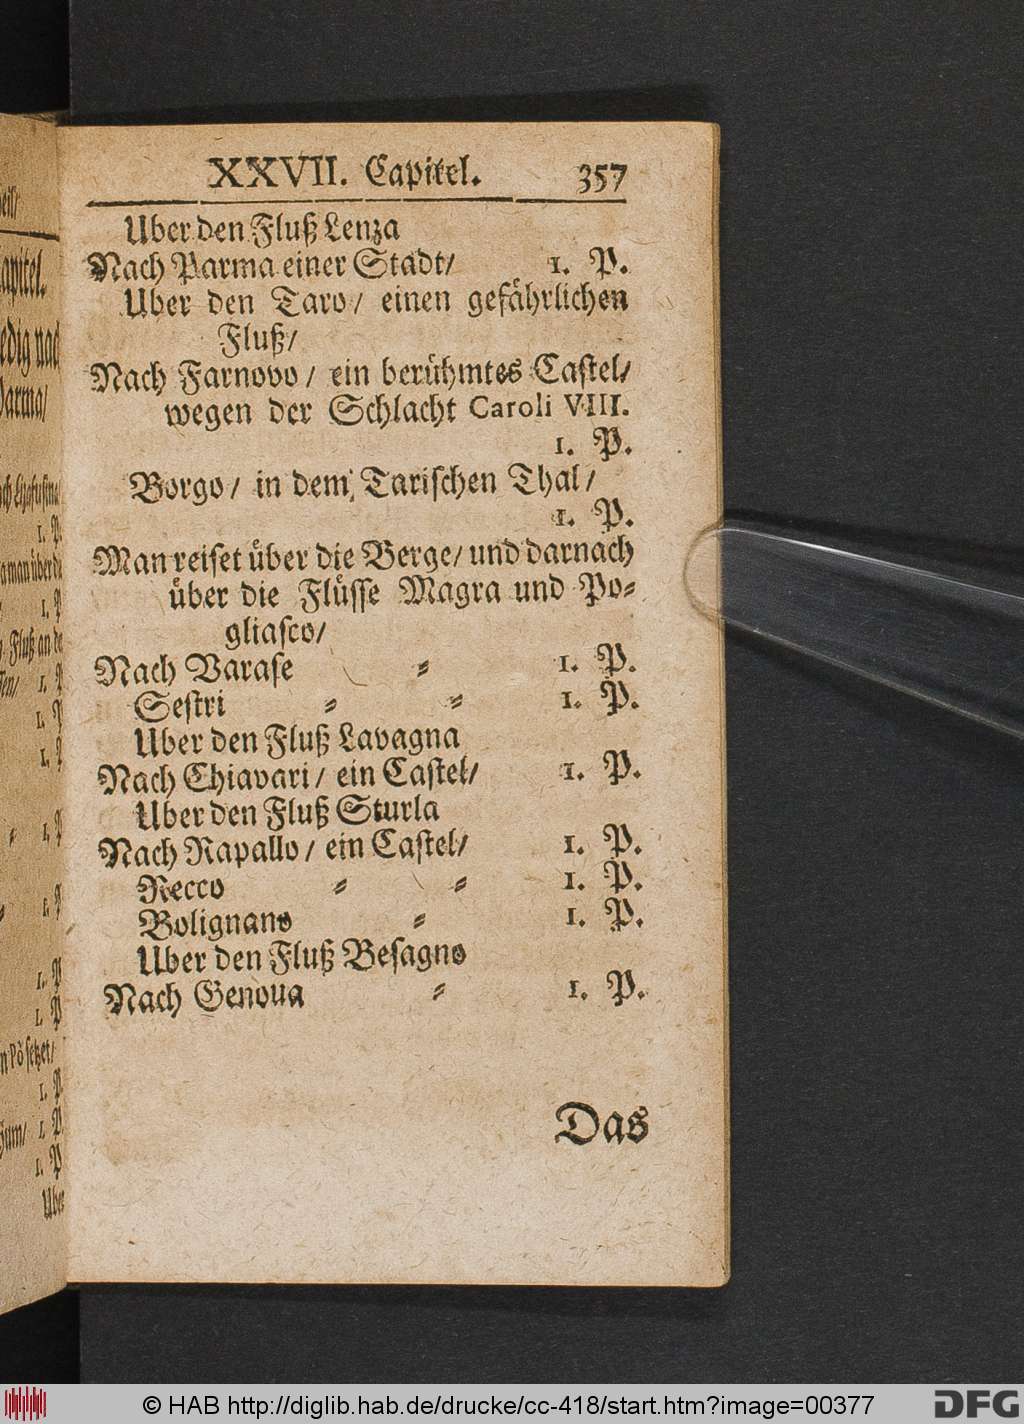 XXVII. Capitel. 357
Uber den Fluß Lenza
Nach Parma einer Stadt/ 1. P.
Uber den Taro/ einen gefährlichen
Fluß/
Nach Farnovo/ ein berühmtes Castel/
wegen der Schlacht Caroli VIII.
1. P.
Borgo/ in dem Tarischen Thal/
1. P.
Man reiset über die Berge/ und darnach
über die Flüsse Magra und Po-
gliasco/
Nach Varase - 1. P.
Sestri - - 1. P.
Uber den Fluß Lavagna
Nach Chiavari/ ein Castel/ 1. P.
Uber den Fluß Sturla
Nach Rapallo/ ein Castel/ 1. P.
Recco - - 1. P.
Bolignano - 1. P.
Uber den Fluß Besagno
Nach Genoua - 1. P.
Das
© HAB http://diglib.hab.de/drucke/cc-418/start.htm?image=00377
DFG